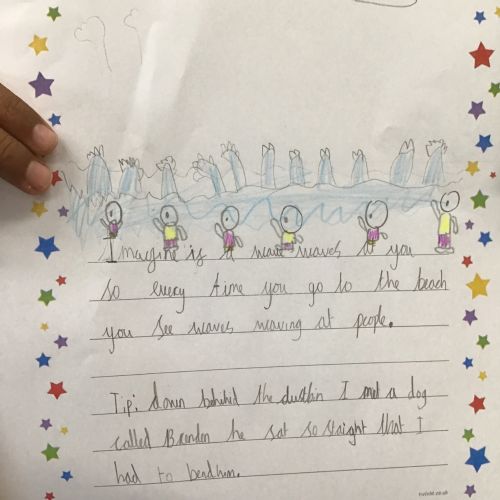 Imagine is a wave waves to you
so every time you go to the beach
you see waves weaving at people.
Tip: down behind the dustbin I met a dog
called Brendon he sat so staight that I
had to bendhim.
twinkl.co.uk